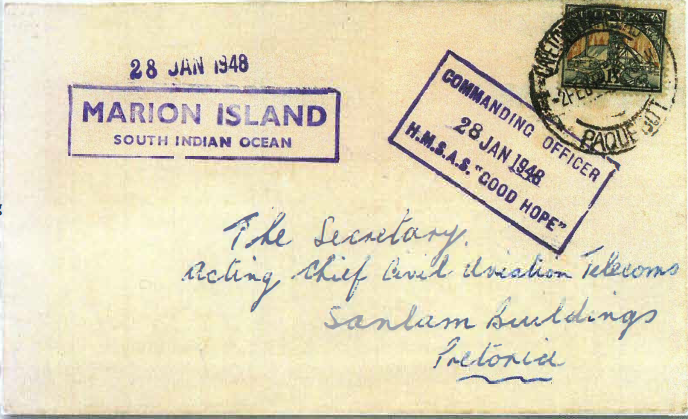 28 JAN 1948
MARION ISLAND
SOUTH INDIAN OCEAN
COMMANDING OFFICER
28 JAN 1948
H.M.S.A.S. "GOOD HOPE"
PAQUEBOT
The Secretary,
Acting Chief Civil Aviation Telecoms
Sanlam Buildings
Pretoria